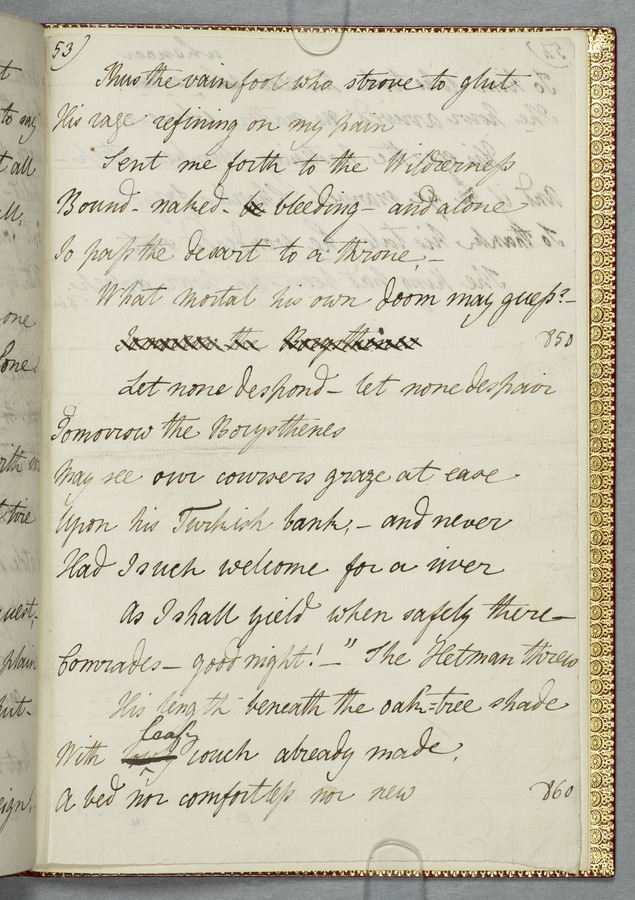 53)
Thus the vain fool who strove to glut
His rage refining on my pain
Sent me forth to the Wilderness
Bound - naked - bleeding - and alone
To pass the desart to a throne, -
What mortal his own doom may guess? -
Tomorrow the Borysthenes
850
Let none despond - let none despair
Tomorrow the Borysthenes
May see our coursers graze at ease
Upon his Turkish bank, - and never
Had I such welcome for a river
As I shall yield when safely there -
Comrades - good night! - " The Hetman threw
His length beneath the oak-tree shade
leafy
With couch already made,
A bed nor comfortless nor new
860